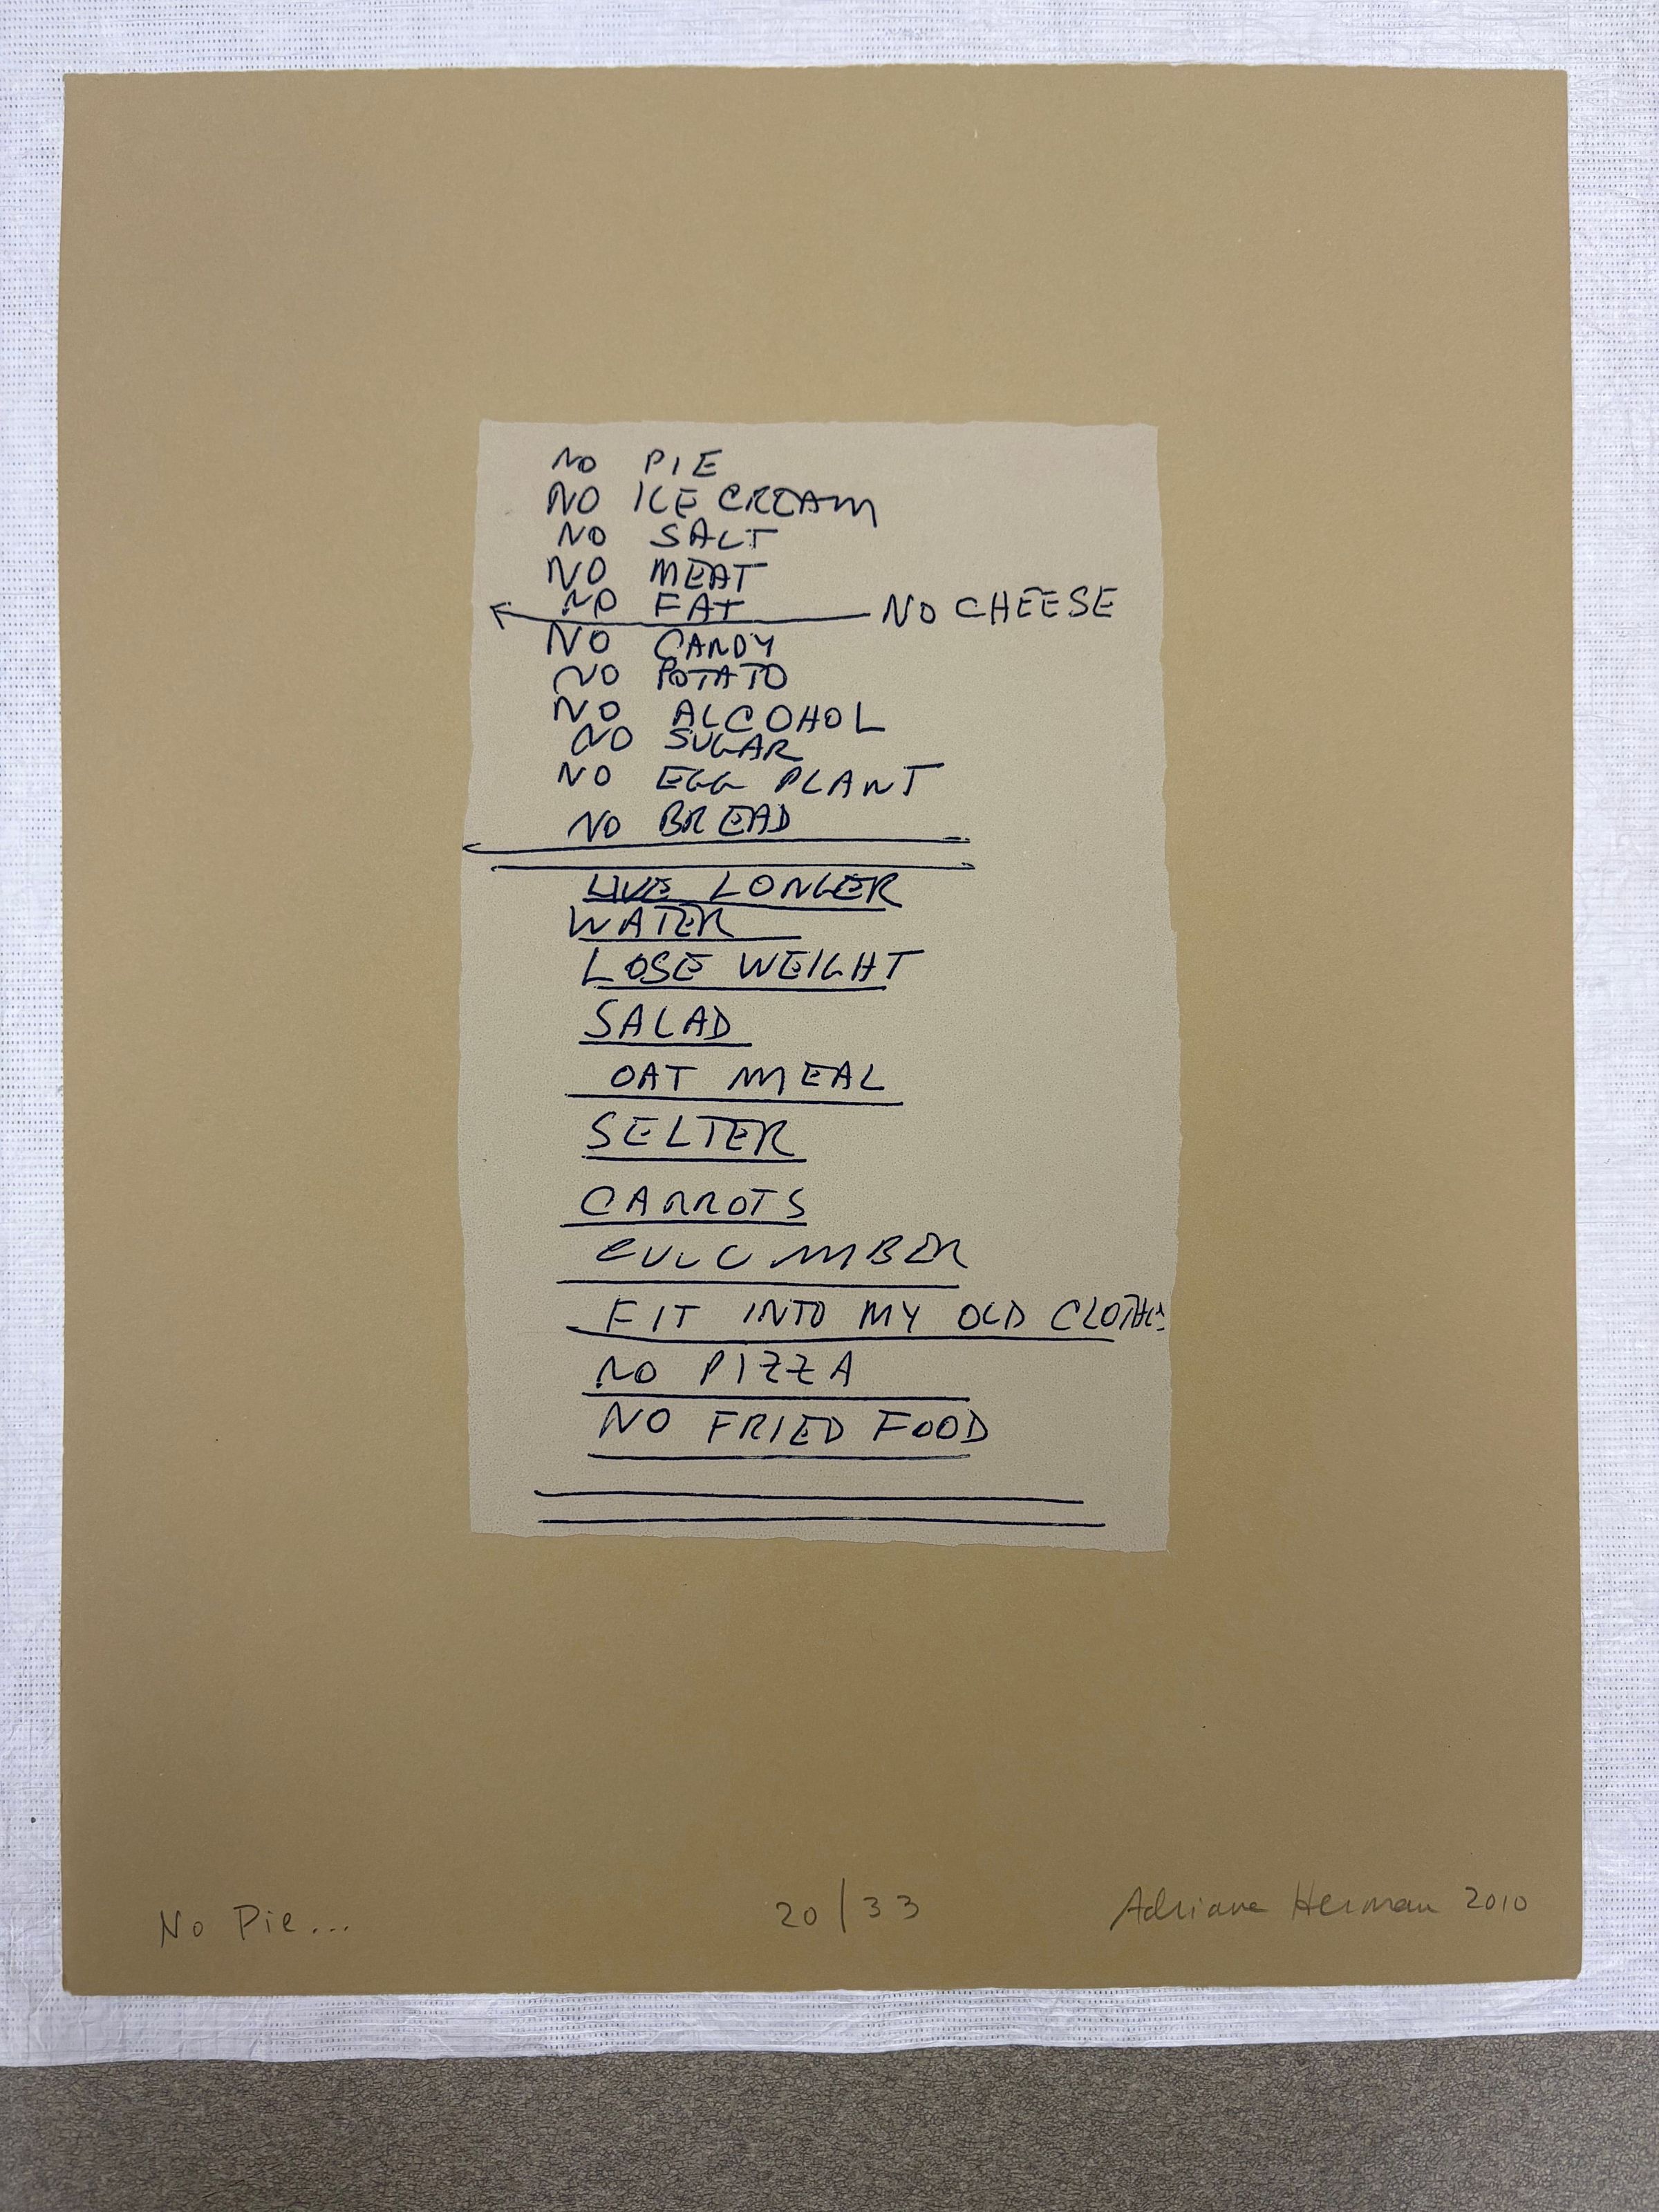 NO PIE
NO ICE CREAM
NO SALT
NO MEAT
NO FAT NO CHEESE
NO CANDY
NO POTATO
NO ALCOHOL
NO SUGAR
NO EGG PLANT
NO BREAD
LIVE LONGER
WATER
LOSE WEIGHT
SALAD
OAT MEAL
SELTER
CARROTS
CUCUMBER
FIT INTO MY OLD CLOTHES
NO PIZZA
NO FRIED FOOD
No Pie... 20/33 Adriane Herman 2010